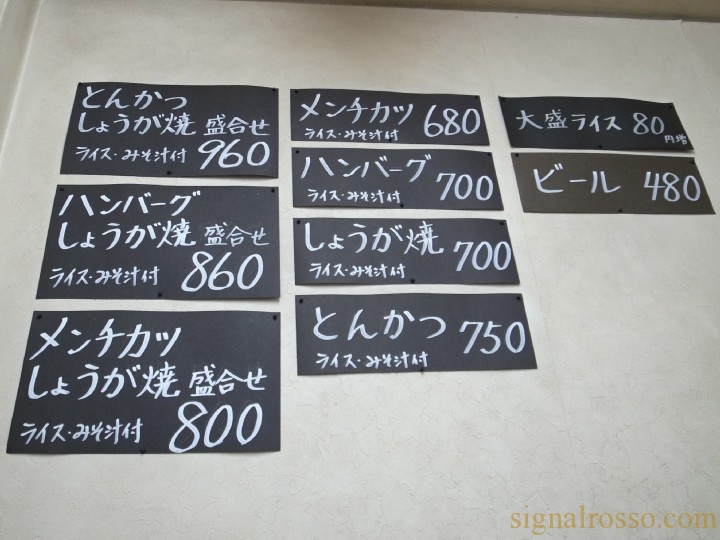 とんかつ
しょうが焼 盛合せ
ライス・みそ汁付 960
ハンバーグ
しょうが焼 盛合せ
ライス・みそ汁付 860
メンチカツ
しょうが焼 盛合せ
ライス・みそ汁付 800
メンチカツ 680
ライス・みそ汁付
ハンバーグ 700
ライス・みそ汁付
しょうが焼 700
ライス・みそ汁付
とんかつ 750
ライス・みそ汁付
大盛ライス 80
円増
ビール 480
signalrosso.com